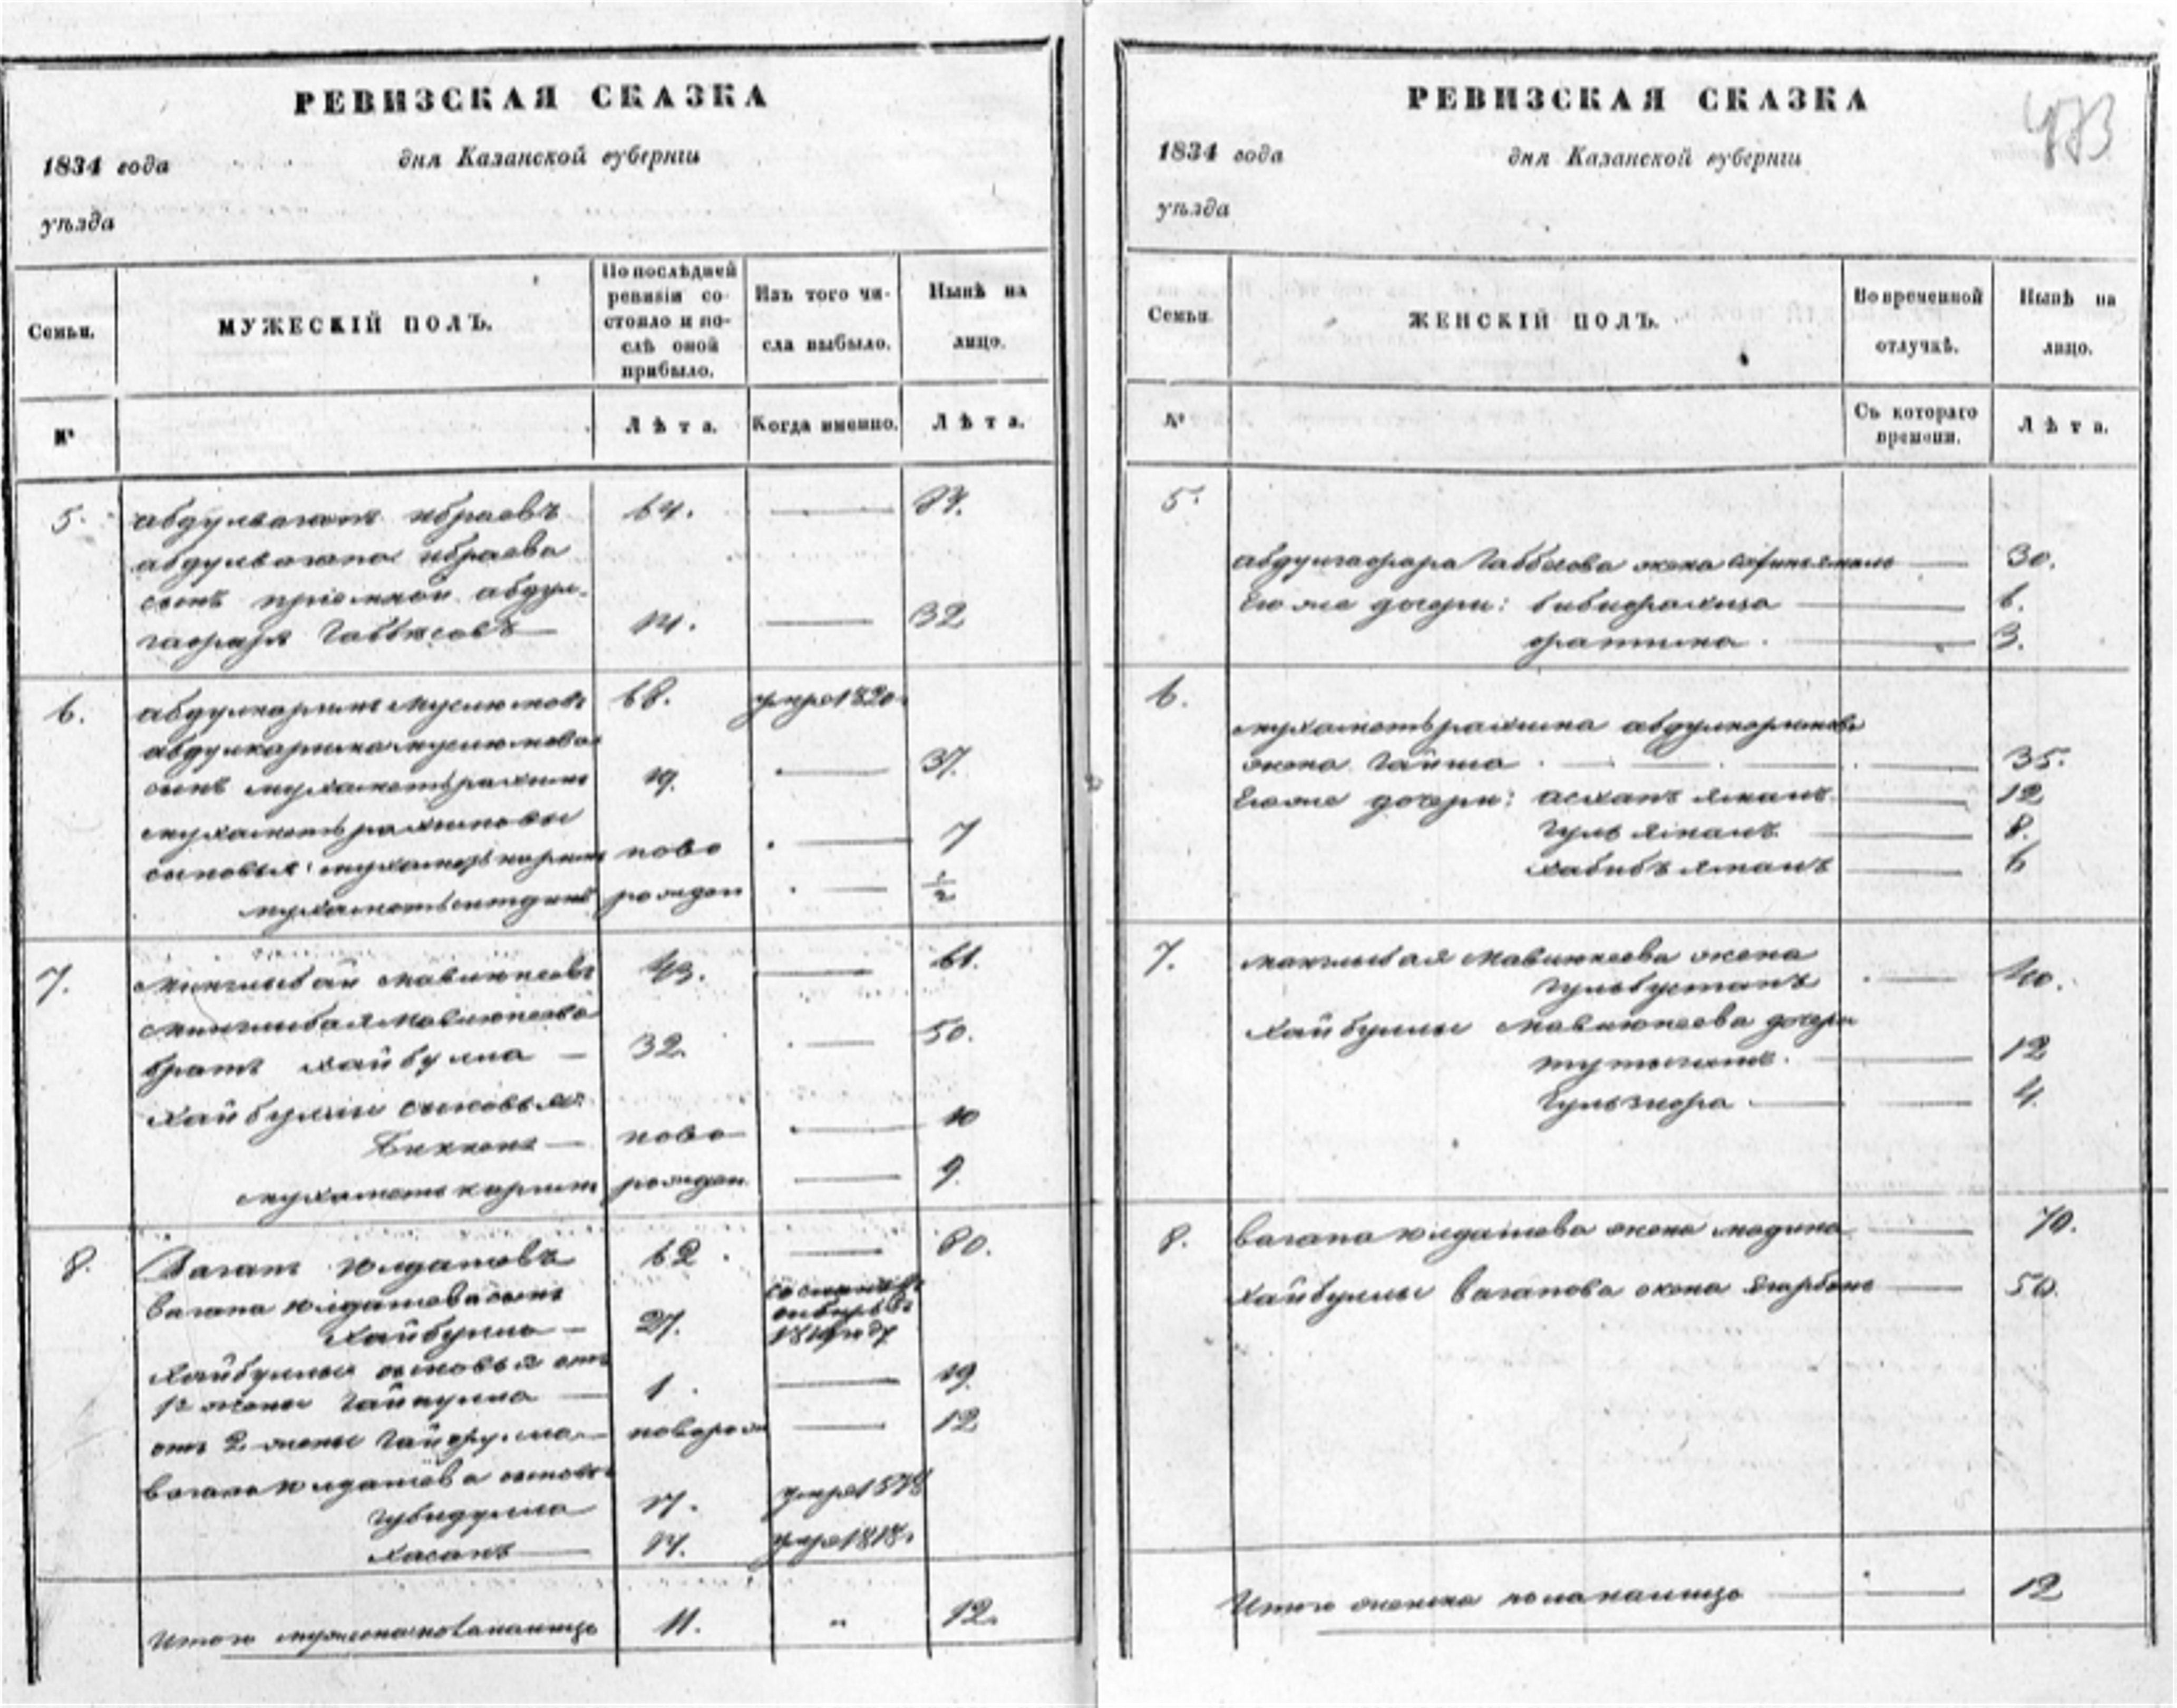 РЕВИЗСКАЯ СКАЗКА
1834 года дня Казанской губернiи
уѣзда
Семьи. МУЖЕСКIЙ ПОЛЪ. По послѣдней ревизiи состояло и послѣ оной прибыло. Изъ того числа выбыло. Нынѣ на лицо.
№ Лѣта. Когда именно. Лѣта.
5. абдулвагапъ ибраевъ 64.
абдулвагапа ибраева
сынъ прiемной абдул-
гафаръ Габбясовъ 14. 32
6. абдулкаримъ муслюмовъ 68. умре 1820
абдулкарима муслюмова
сынъ мухаметьрахимъ 19. 37.
мухаметьрахимовы
сыновья: мухаметькаримъ ново 7
рожден ½
7. минглыбай мавлюкеевъ 43. 61.
минглыбая мавлюкеева
братъ хайбулла 32. 50.
хайбуллы сыновья
ново 10
мухаметькаримъ рожден 9.
8. Вагапъ юлдашевъ 62. 80.
вагапа юлдашева сынъ
хайбулла 27.
хайбуллы сыновья отъ
1й жены 1. 19.
отъ 2 жены новорож 12
вагапа юлдашева сыновья
губидулла 17. умре
хасанъ 14. умре 1818.
Итого мужеска пола налицо 11. " 12.
РЕВИЗСКАЯ СКАЗКА
1834 года дня Казанской губернiи
уѣзда
Семьи. ЖЕНСКIЙ ПОЛЪ. Во временной отлучкѣ. Нынѣ на лицо.
№ Съ котораго времени. Лѣта.
5.
абдулгафара Габбясова жена 30.
Его же дочери: бибифахиза 6.
фатима 3.
6.
мухаметьрахима абдулкаримова
жена Гайша 35.
Его же дочери: асхапъ ямалъ 12
Гуль ямалъ 8.
хабибъ ямалъ 6
7. минглыбая мавлюкеева жена
гульбустанъ 40.
хайбуллы мавлюкеева дочери
12
Гульзифора 4.
8. вагапа юлдашева жена мадина 70.
хайбуллы вагапова жена 50.
Итого женска пола налицо 12